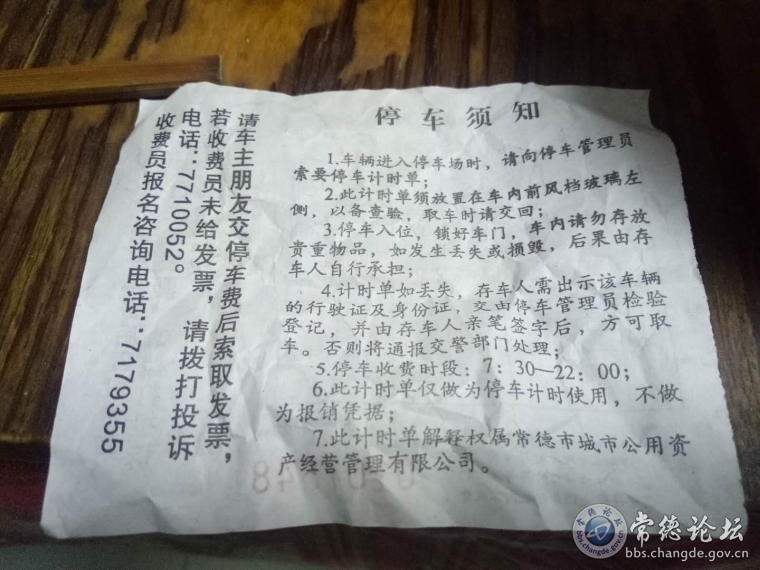 停车须知
1.车辆进入停车场时，请向停车管理员
索要停车计时单；
2.此计时单须放置在车内前风档玻璃左
侧，以备查验，取车时请交回；
3.停车入位，锁好车门，车内请勿存放
贵重物品，如发生丢失或损毁，后果由存
车人自行承担；
4.计时单如丢失，存车人需出示该车辆
的行驶证及身份证，交由停车管理员检验
登记，并由存车人亲笔签字后，方可取
车。否则将通报交警部门处理；
5.停车收费时段：7：30—22：00；
6.此计时单仅做为停车计时使用，不做
为报销凭据；
7.此计时单解释权属常德市城市公用资
产经营管理有限公司。
请车主朋友交停车费后索取发票，
若收费员未给发票，请拨打投诉
电话：7710052。
收费员报名咨询电话：7179355
常德论坛
bbs.changde.gov.cn